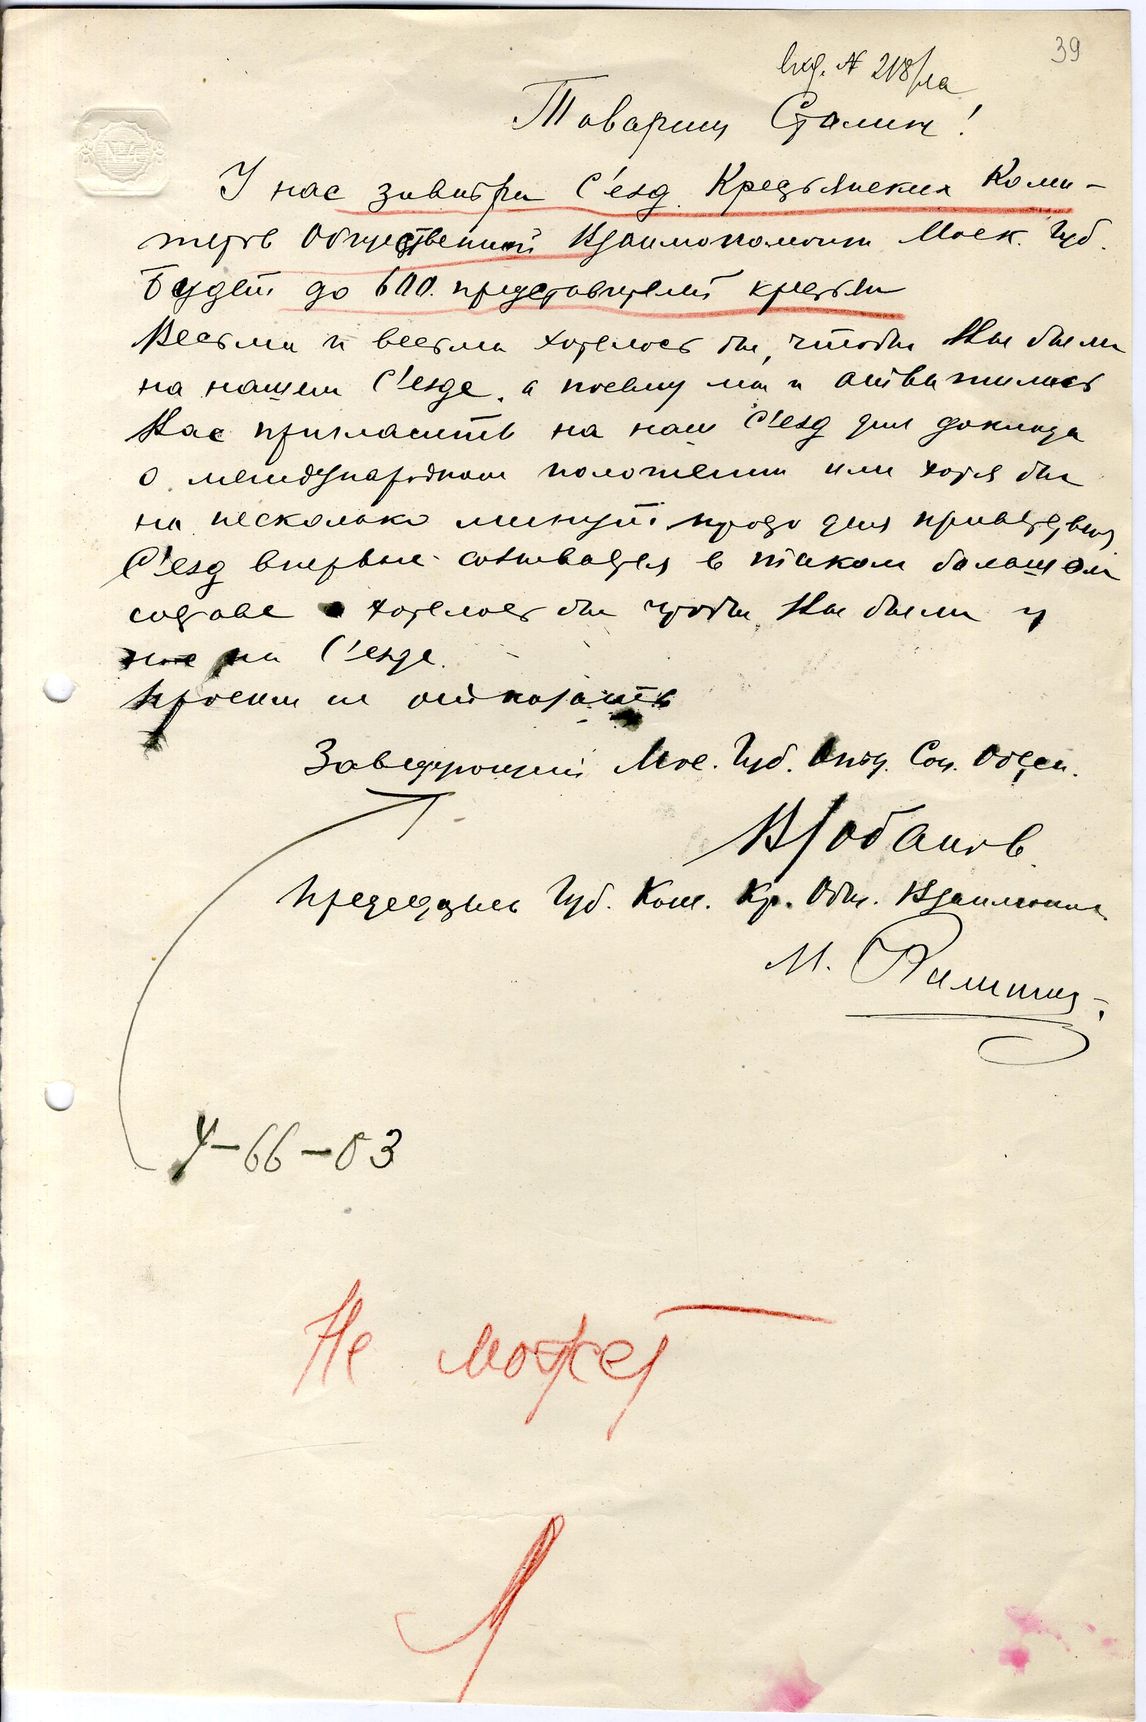 39
вхд. № 218/па
Товарищ Сталин!
У нас завтра С'езд Крестьянских Коми-
тетов Общественной Взаимопомощи Моск. Губ.
Будет до 600. представителей крестьян
Весьма и весьма хотелось бы, чтобы Вы были
на нашем С'езде, а поему мы и отважились
Вас пригласить на наш С'езд для доклада
о международном положении или хотя бы
на несколько минут просто для приветствия
С'езд впервые созывается в таком большом
составе хотелось бы чтобы Вы были у
на С'езде.
Просим не отказать
Заведующий Мос. Губ. Отд. Соц. Обесп.
Предсядатель Губ. Ком. Кр. Общ. Взаимопом.
М.
4-66-03
Не может